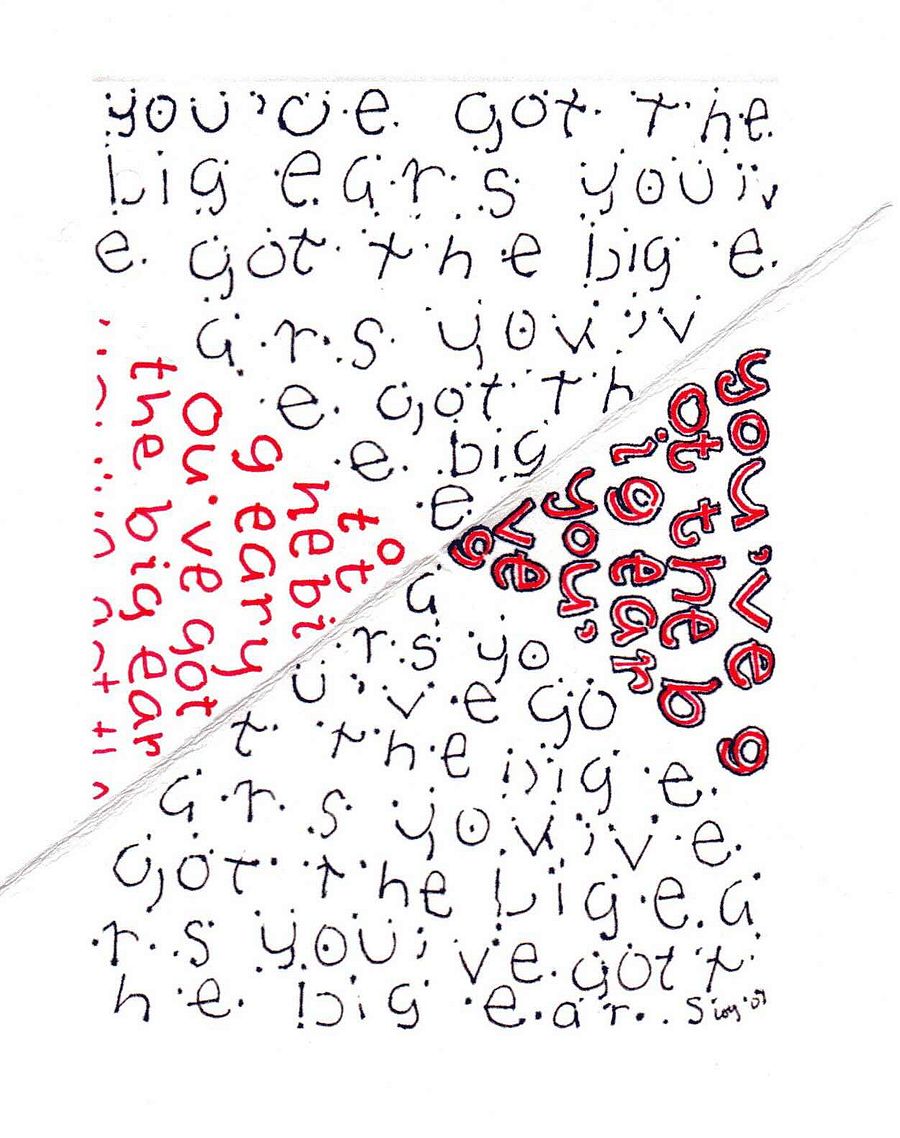 you've got the
big ears you'v
e got the big e
ars you'v
e got th
e big
e
a
rs yo
u've go
t the big e
ars you've
got the big ea
rs you've gott
he big ear.
the big ear
ou've got
g eary
hebi
tot
you've g
ot the b
ig ear
you'
ve
g